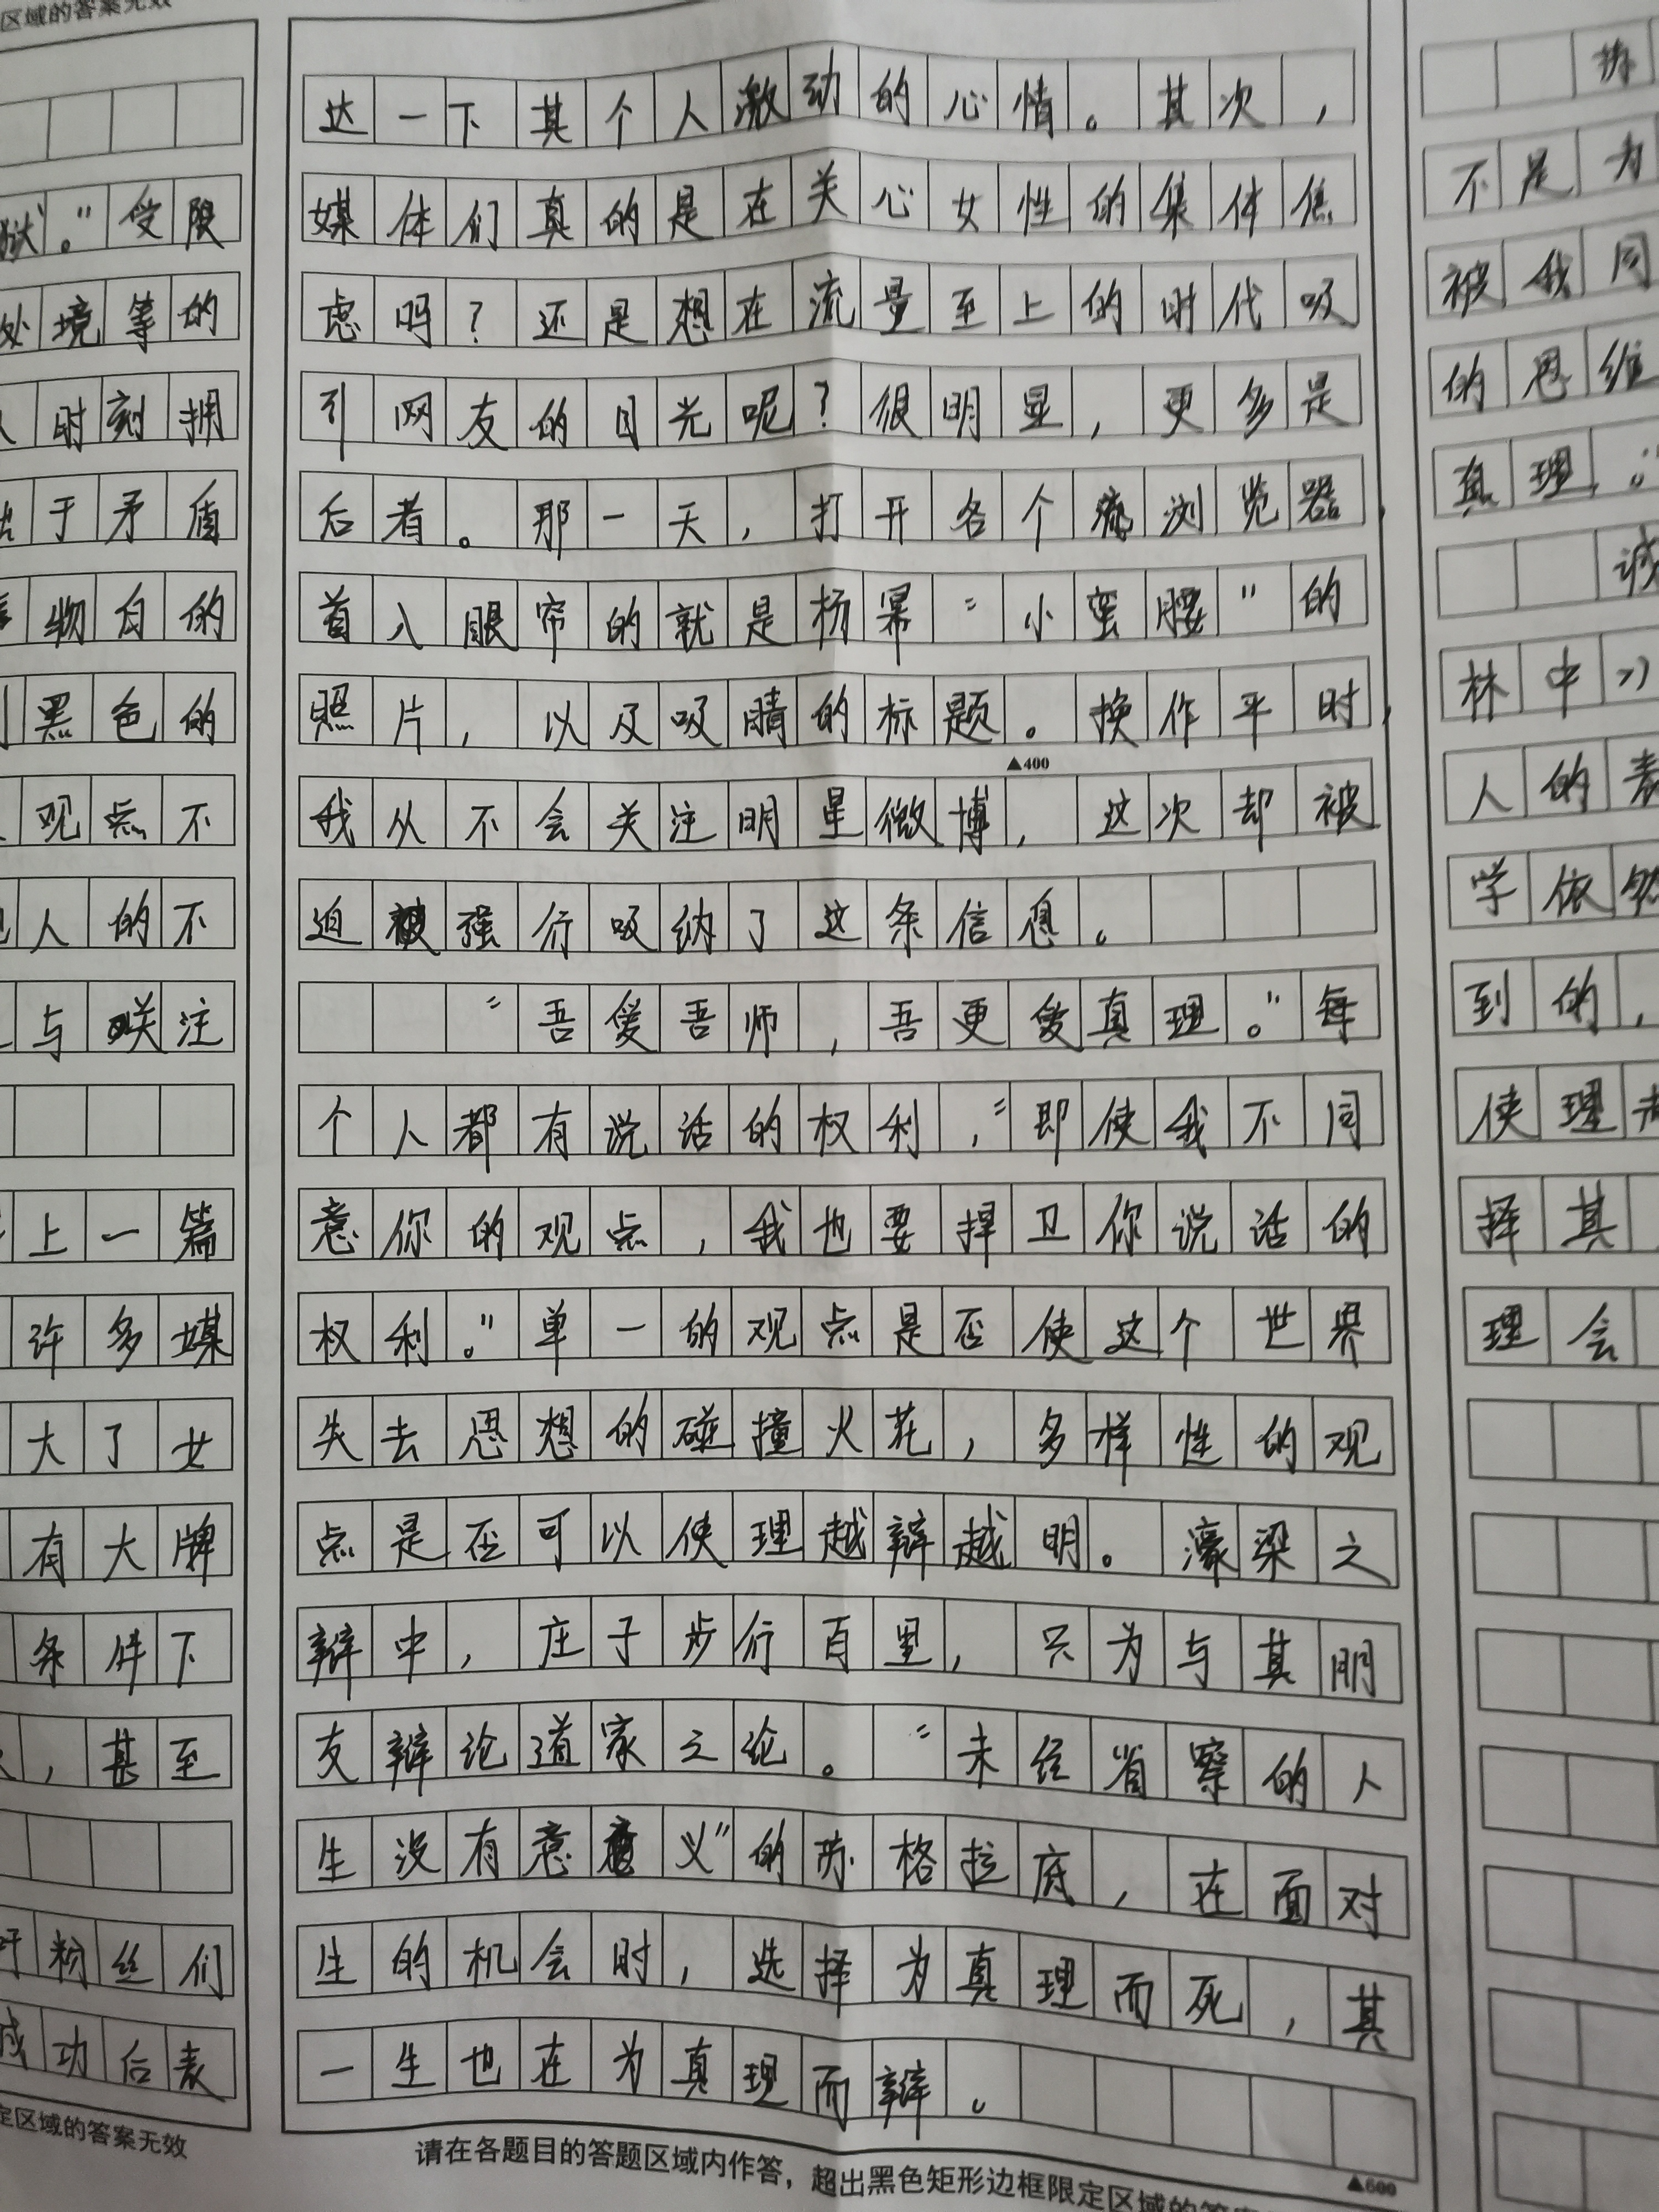 区域的答案无效
狱。"受限
处境等的
时刻拥
于矛盾
物白的
黑色的
观点不
人的不
与关注
上一篇
许多媒
大了女
有大牌
条件下
，甚至
粉丝们
成功后表
定区域的答案无效
达一下其个人激动的心情。其次，
媒体们真的是在关心女性的集体焦
虑吗？还是想在流量至上的时代吸
引网友的目光呢？很明显，更多是
后者。那一天，打开各个浏览器，
首入眼帘的就是杨幂"小蛮腰"的
照片，以及吸睛的标题。换作平时，
▲400
我从不会关注明星微博，这次却被
迫强行吸纳了这条信息。
"吾爱吾师，吾更爱真理。"每
个人都有说话的权利，"即使我不同
意你的观点，我也要捍卫你说话的
权利。"单一的观点是否使这个世界
失去思想的碰撞火花，多样性的观
点是否可以使理越辩越明。濠梁之
辩中，庄子步行百里，只为与其朋
友辩论道家之论。"未经省察的人
生没有意义"的苏格拉底，在面对
生的机会时，选择为真理而死，其
一生也在为真理而辩。
▲600
请在各题目的答题区域内作答，超出黑色矩形边框限定区域的答案
不是为
被我同
的思维
真理。"
诚
林中》
人的表
学依然
到的，
使理
择其
理会